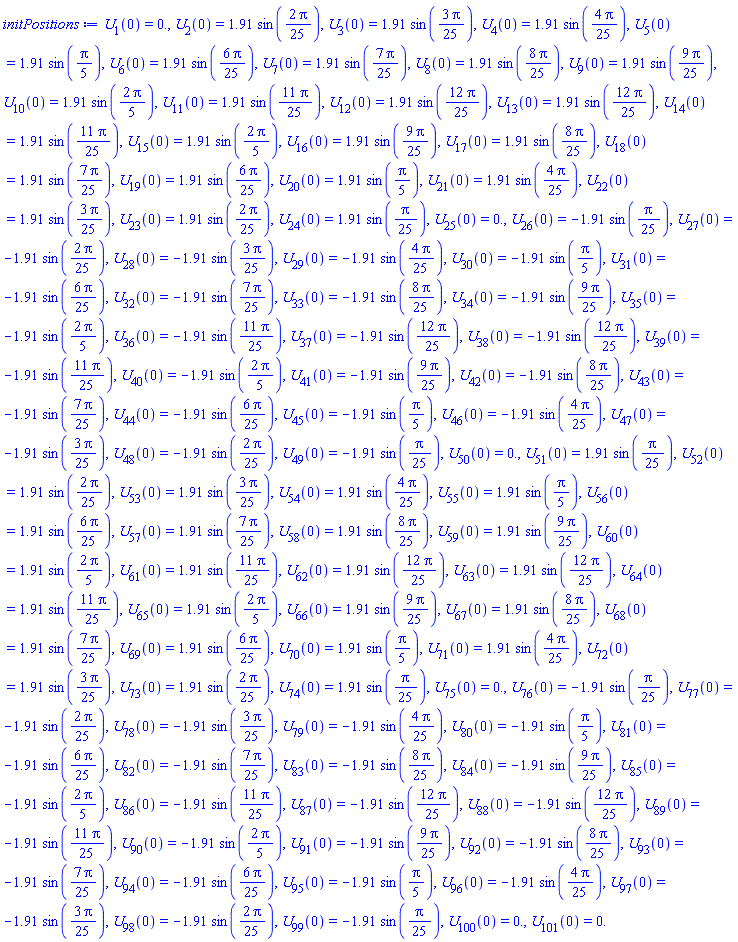 initPositions := U₁(0) = 0., U₂(0) = 1.91 sin(2 π/25), U₃(0) = 1.91 sin(3 π/25), U₄(0) = 1.91 sin(4 π/25), U₅(0)
= 1.91 sin(π/5), U₆(0) = 1.91 sin(6 π/25), U₇(0) = 1.91 sin(7 π/25), U₈(0) = 1.91 sin(8 π/25), U₉(0) = 1.91 sin(9 π/25),
U₁₀(0) = 1.91 sin(2 π/5), U₁₁(0) = 1.91 sin(11 π/25), U₁₂(0) = 1.91 sin(12 π/25), U₁₃(0) = 1.91 sin(12 π/25), U₁₄(0)
= 1.91 sin(11 π/25), U₁₅(0) = 1.91 sin(2 π/5), U₁₆(0) = 1.91 sin(9 π/25), U₁₇(0) = 1.91 sin(8 π/25), U₁₈(0)
= 1.91 sin(7 π/25), U₁₉(0) = 1.91 sin(6 π/25), U₂₀(0) = 1.91 sin(π/5), U₂₁(0) = 1.91 sin(4 π/25), U₂₂(0)
= 1.91 sin(3 π/25), U₂₃(0) = 1.91 sin(2 π/25), U₂₄(0) = 1.91 sin(π/25), U₂₅(0) = 0., U₂₆(0) = -1.91 sin(π/25), U₂₇(0) =
-1.91 sin(2 π/25), U₂₈(0) = -1.91 sin(3 π/25), U₂₉(0) = -1.91 sin(4 π/25), U₃₀(0) = -1.91 sin(π/5), U₃₁(0) =
-1.91 sin(6 π/25), U₃₂(0) = -1.91 sin(7 π/25), U₃₃(0) = -1.91 sin(8 π/25), U₃₄(0) = -1.91 sin(9 π/25), U₃₅(0) =
-1.91 sin(2 π/5), U₃₆(0) = -1.91 sin(11 π/25), U₃₇(0) = -1.91 sin(12 π/25), U₃₈(0) = -1.91 sin(12 π/25), U₃₉(0) =
-1.91 sin(11 π/25), U₄₀(0) = -1.91 sin(2 π/5), U₄₁(0) = -1.91 sin(9 π/25), U₄₂(0) = -1.91 sin(8 π/25), U₄₃(0) =
-1.91 sin(7 π/25), U₄₄(0) = -1.91 sin(6 π/25), U₄₅(0) = -1.91 sin(π/5), U₄₆(0) = -1.91 sin(4 π/25), U₄₇(0) =
-1.91 sin(3 π/25), U₄₈(0) = -1.91 sin(2 π/25), U₄₉(0) = -1.91 sin(π/25), U₅₀(0) = 0., U₅₁(0) = 1.91 sin(π/25), U₅₂(0)
= 1.91 sin(2 π/25), U₅₃(0) = 1.91 sin(3 π/25), U₅₄(0) = 1.91 sin(4 π/25), U₅₅(0) = 1.91 sin(π/5), U₅₆(0)
= 1.91 sin(6 π/25), U₅₇(0) = 1.91 sin(7 π/25), U₅₈(0) = 1.91 sin(8 π/25), U₅₉(0) = 1.91 sin(9 π/25), U₆₀(0)
= 1.91 sin(2 π/5), U₆₁(0) = 1.91 sin(11 π/25), U₆₂(0) = 1.91 sin(12 π/25), U₆₃(0) = 1.91 sin(12 π/25), U₆₄(0)
= 1.91 sin(11 π/25), U₆₅(0) = 1.91 sin(2 π/5), U₆₆(0) = 1.91 sin(9 π/25), U₆₇(0) = 1.91 sin(8 π/25), U₆₈(0)
= 1.91 sin(7 π/25), U₆₉(0) = 1.91 sin(6 π/25), U₇₀(0) = 1.91 sin(π/5), U₇₁(0) = 1.91 sin(4 π/25), U₇₂(0)
= 1.91 sin(3 π/25), U₇₃(0) = 1.91 sin(2 π/25), U₇₄(0) = 1.91 sin(π/25), U₇₅(0) = 0., U₇₆(0) = -1.91 sin(π/25), U₇₇(0) =
-1.91 sin(2 π/25), U₇₈(0) = -1.91 sin(3 π/25), U₇₉(0) = -1.91 sin(4 π/25), U₈₀(0) = -1.91 sin(π/5), U₈₁(0) =
-1.91 sin(6 π/25), U₈₂(0) = -1.91 sin(7 π/25), U₈₃(0) = -1.91 sin(8 π/25), U₈₄(0) = -1.91 sin(9 π/25), U₈₅(0) =
-1.91 sin(2 π/5), U₈₆(0) = -1.91 sin(11 π/25), U₈₇(0) = -1.91 sin(12 π/25), U₈₈(0) = -1.91 sin(12 π/25), U₈₉(0) =
-1.91 sin(11 π/25), U₉₀(0) = -1.91 sin(2 π/5), U₉₁(0) = -1.91 sin(9 π/25), U₉₂(0) = -1.91 sin(8 π/25), U₉₃(0) =
-1.91 sin(7 π/25), U₉₄(0) = -1.91 sin(6 π/25), U₉₅(0) = -1.91 sin(π/5), U₉₆(0) = -1.91 sin(4 π/25), U₉₇(0) =
-1.91 sin(3 π/25), U₉₈(0) = -1.91 sin(2 π/25), U₉₉(0) = -1.91 sin(π/25), U₁₀₀(0) = 0., U₁₀₁(0) = 0.